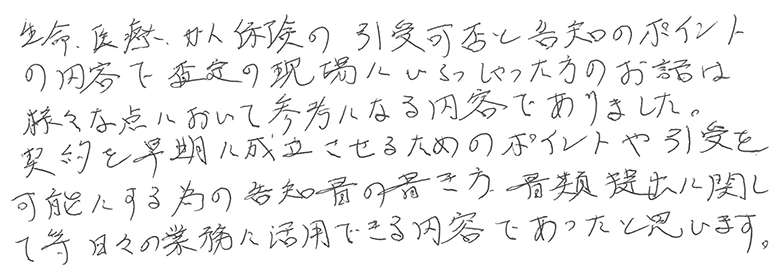 生命、医療、ガん保険の引受可否と告知のポイント
の内容で査定の現場にいらっしゃった方のお話は
様々な点において参考になる内容でありました。
契約を早期に成立させるためのポイントや引受を
可能にする為の告知書の書き方、書類提出に関し
て等日々の業務に活用できる内容であったと思います。